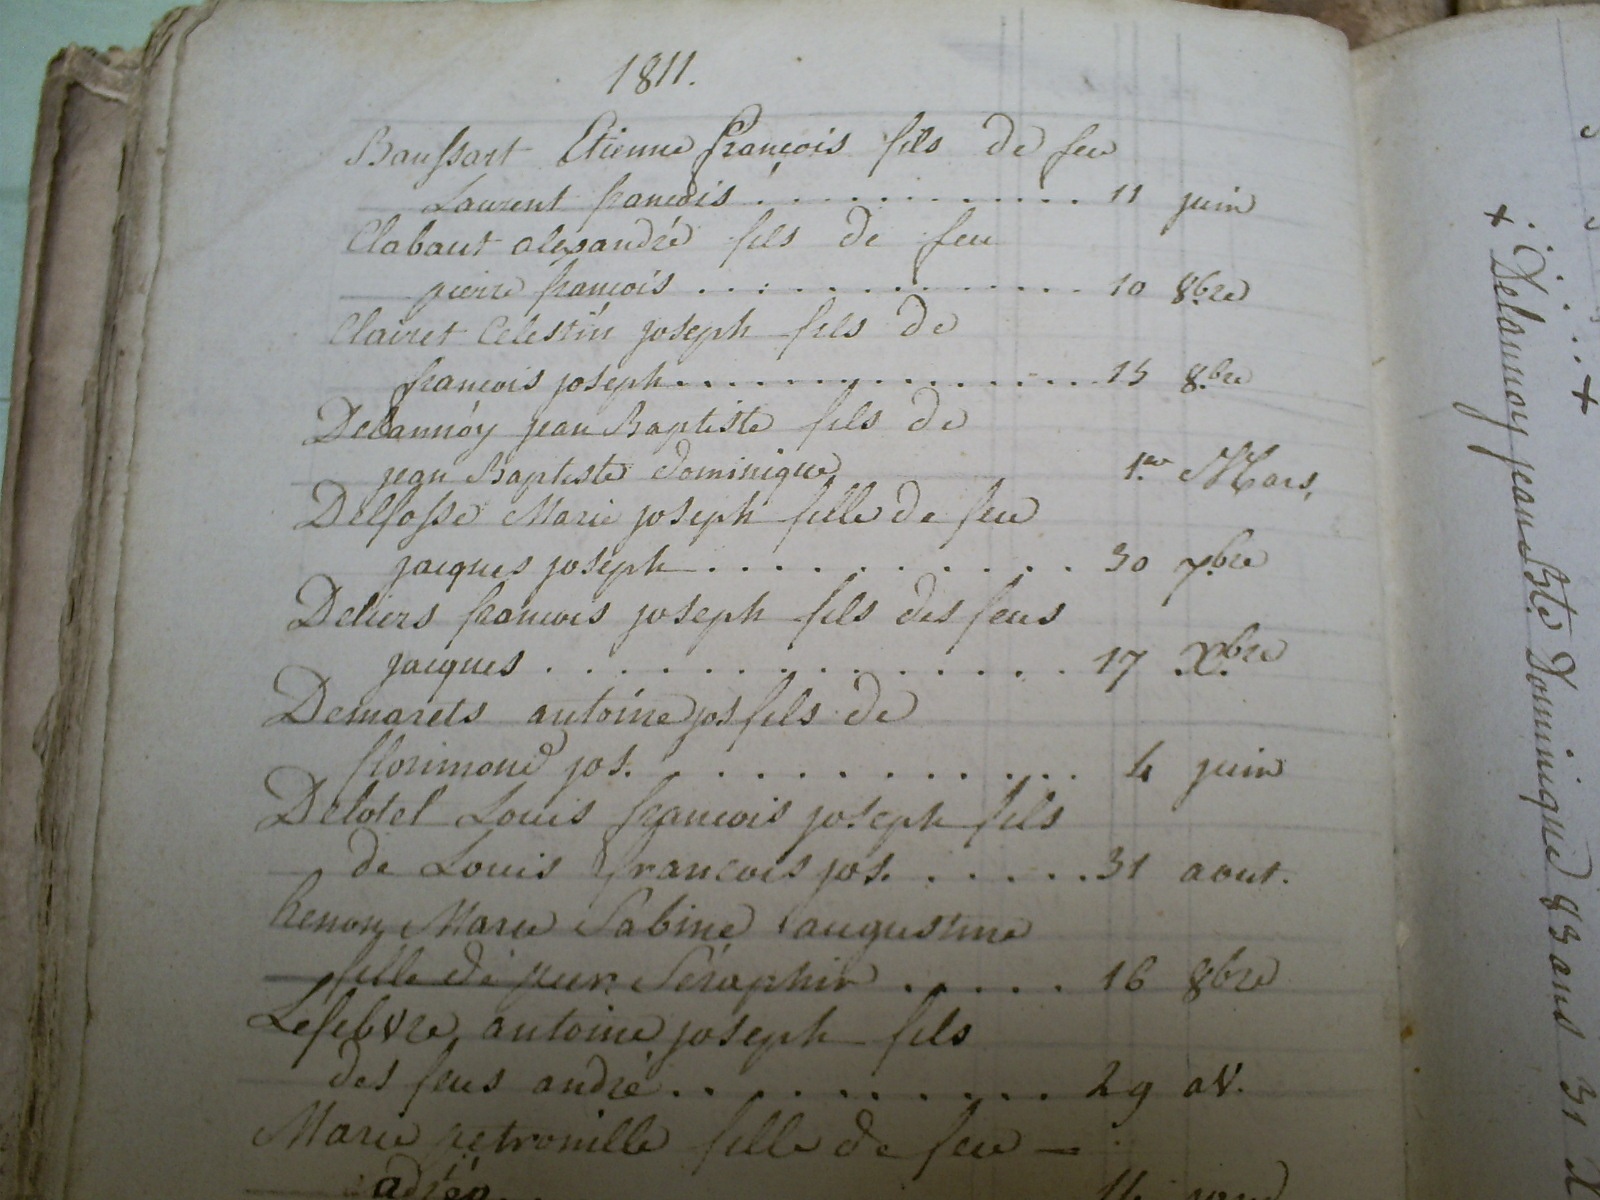 1811.
Baussart Etienne françois fils de feu
Laurent francois . . . . . . . . . . . . 11 juin
Clabaut alexandre fils de feu
pierre francois . . . . . . . . . . . . . 10 8bre
Clairet Celestin joseph fils de
francois joseph . . . . . . . . . . . . . . 15 8.bre
Delannoy jean Baptiste fils de
jean Baptiste dominique 1.er Mars.
Delfosse Marie joseph fille de feu
jacques joseph . . . . . . . . . . . . 30 7bre
Deliers francois joseph fils des feus
jacques . . . . . . . . . . . . . . . . 17 X.bre
Demarets antoine jos fils de
florimond jos. . . . . . . . . . . . 4 juin
Delotel Louis francois joseph fils
de Louis francois jos. . . . . . 31 aout.
henon Marie Sabine augustine
fille de pierre Séraphin . . . . . . 16 8bre
Lefebvre antoine joseph fils
des feus andré . . . . . . . . . . . . 29 av.
Marie petronille fille de feu —
Delannoy jean Bte. Dominique 83 ans 31